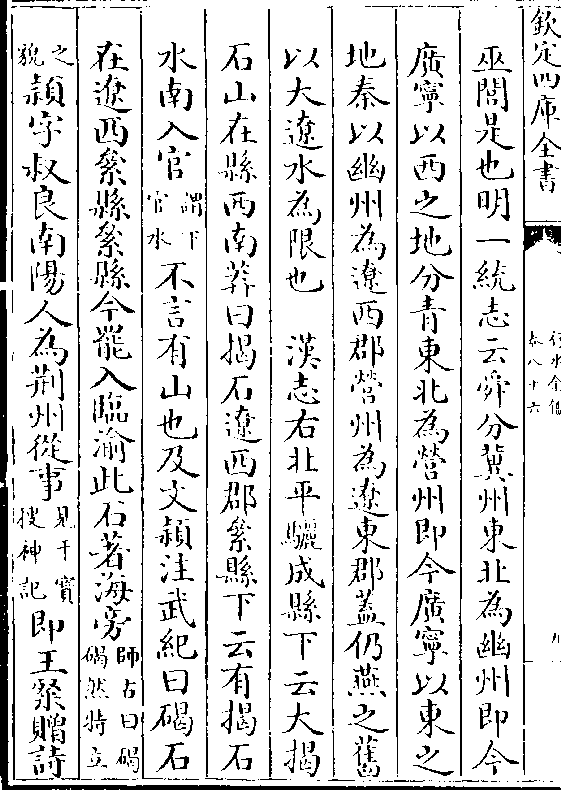 欽定四庫全書
巫閭是也明一統志云舜分冀州東北為幽州即今
廣寧以西之地分青東北為營州即今廣寧以東之
地秦以幽州為遼西郡營州為遼東郡蓋仍燕之舊
以大遼水為限也　漢志右北平驪成縣下云大揭
石山在縣西南莽曰揭石遼西郡絫縣下云有揭石
水南入官謂下官水不言有山也及文頴注武紀曰碣石
在遼西絫縣絫縣今罷入臨渝此石著海旁師古曰碣碣然特立
之貌頴字叔良南陽人為荆州從事見干寶搜神記即王粲贈詩